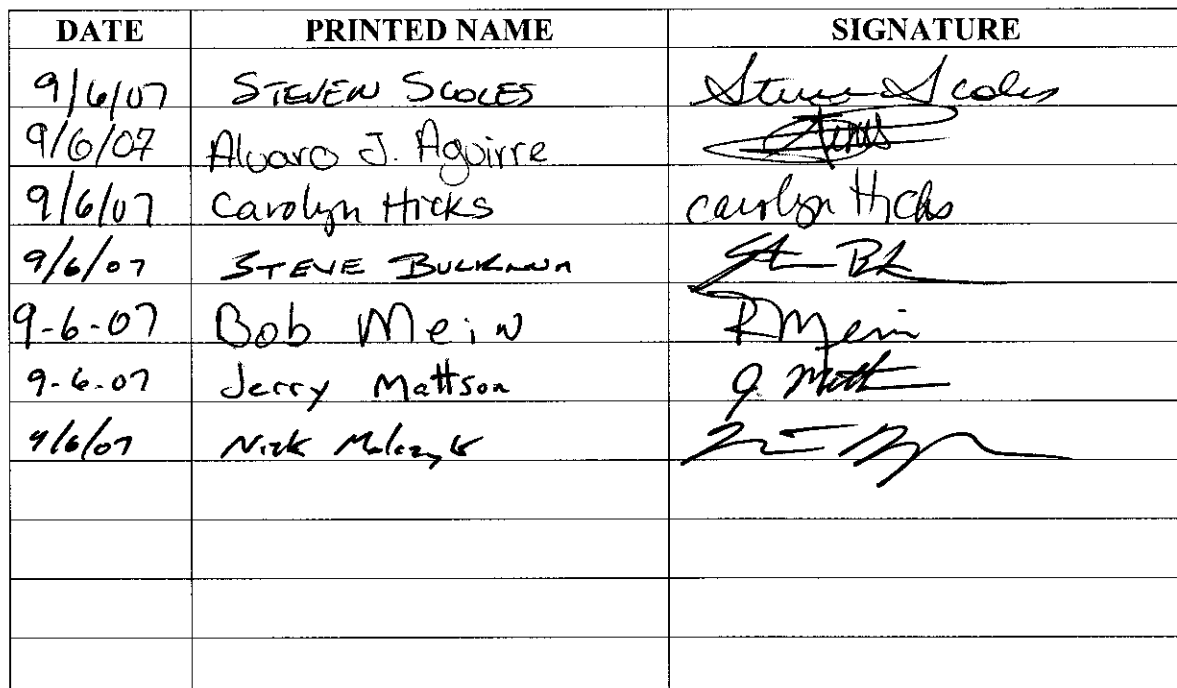 DATE PRINTED NAME SIGNATURE
9/6/07 STEVEN SCOLES Steven Scoles
9/6/07 Alvaro J. Aguirre
9/6/07 Carolyn Hicks Carolyn Hicks
9/6/07 STEVE
9-6-07 Bob Mein R Mein
9-6-07 Jerry Mattson J. Matt
9/6/07 Nick